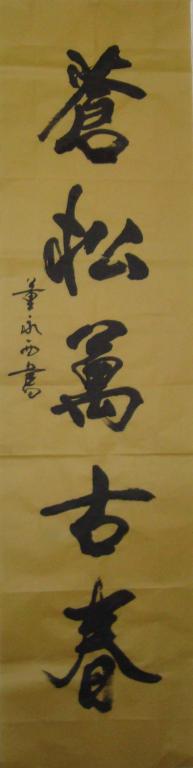 蒼松萬古春
董永西書